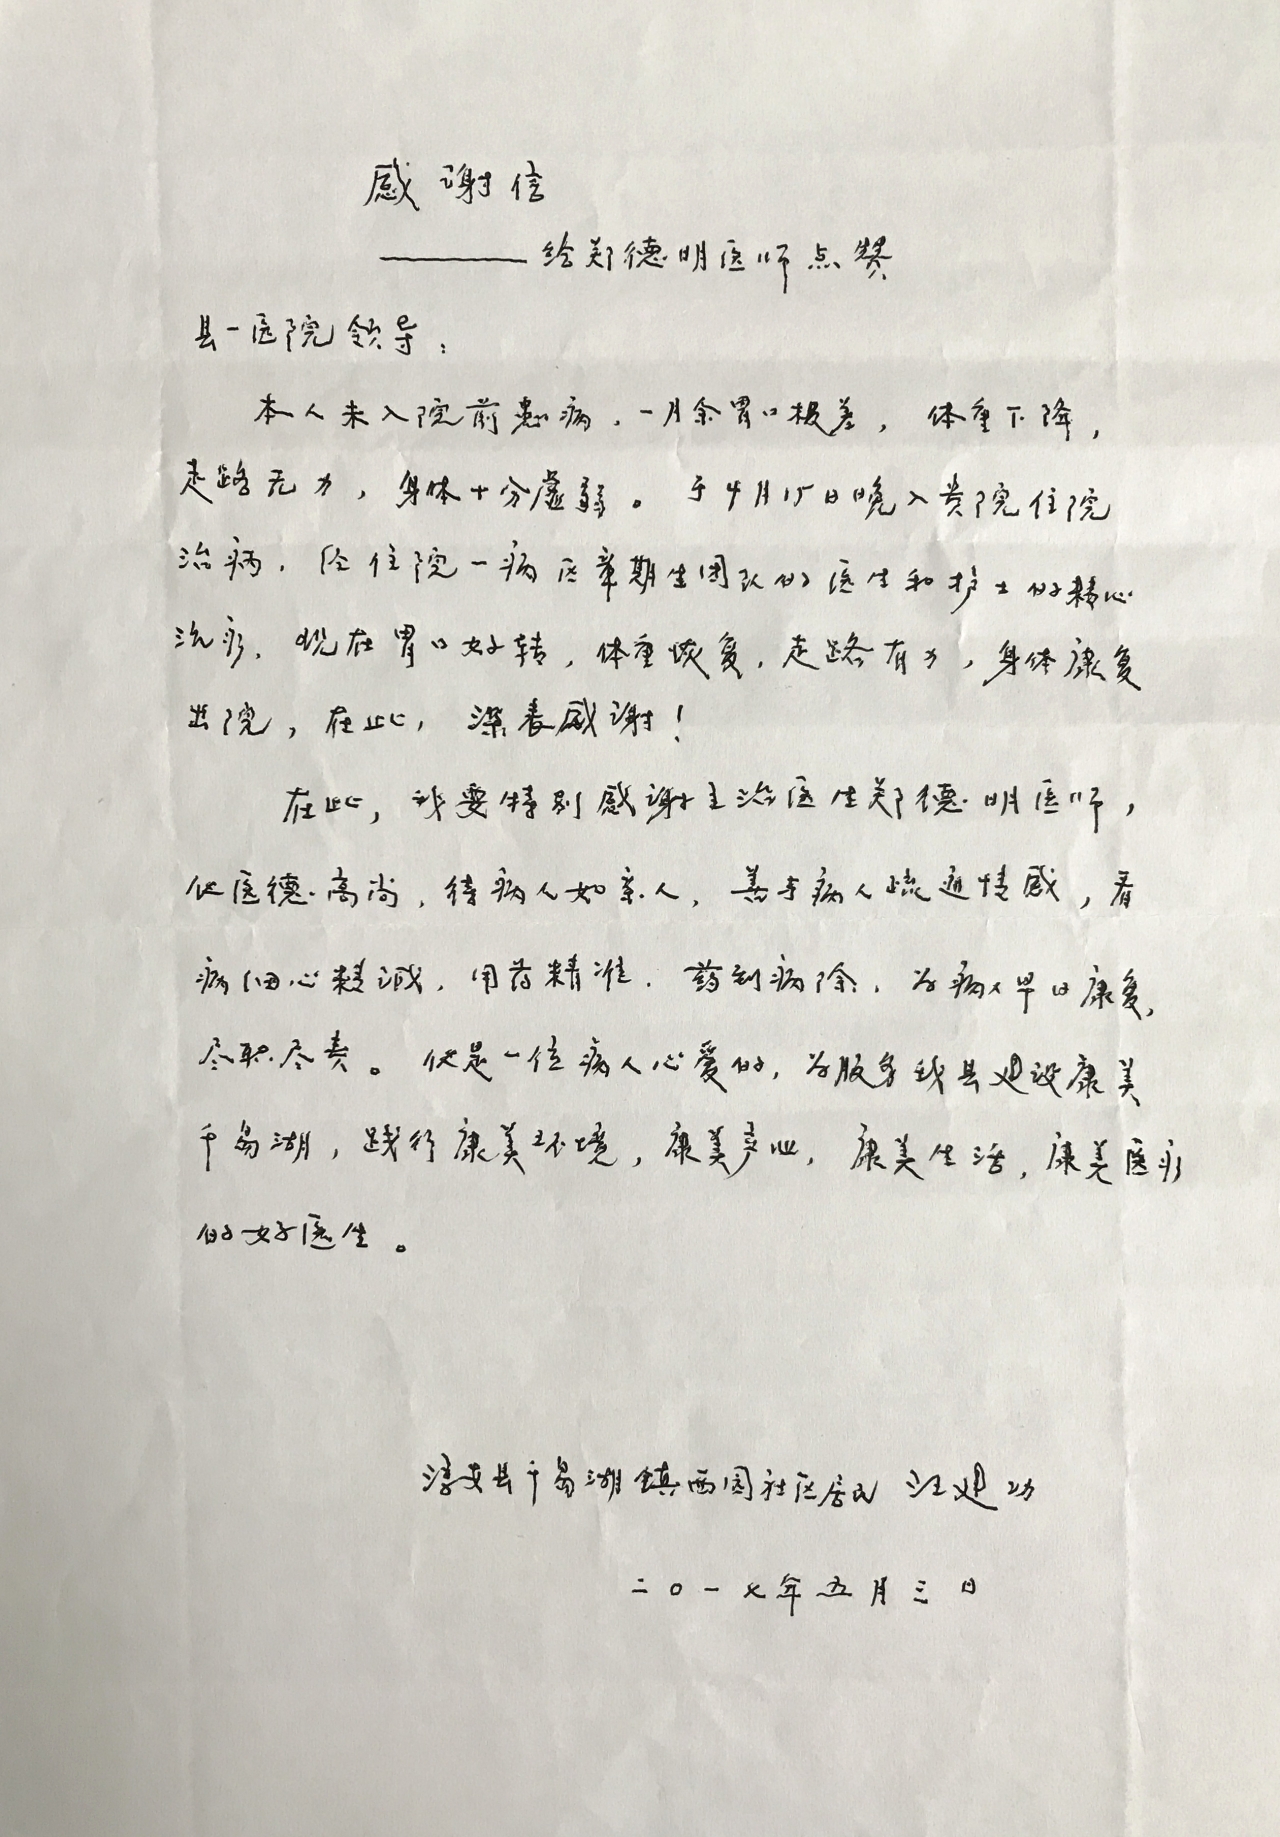 感谢信
——给郑德明医师点赞
县一医院领导：
本人未入院前患病，一月余胃口极差，体重下降，
走路无力，身体十分虚弱。于4月15日晚入贵院住院
治病，经住院一病区章期生团队的医生和护士的精心
治疗，现在胃口好转，体重恢复，走路有力，身体康复
出院，在此，深表感谢！
在此，我要特别感谢主治医生郑德明医师，
他医德高尚，待病人如亲人，善于病人疏通情感，看
病细心精诚，用药精准，药到病除，为病人早日康复，
尽职尽责。他是一位病人心爱的，为服务我县建设康美
千岛湖，践行康美环境，康美产业，康美生活，康美医疗
的好医生。
淳安县千岛湖镇西园社区居民 汪建功
二〇一七年五月三日